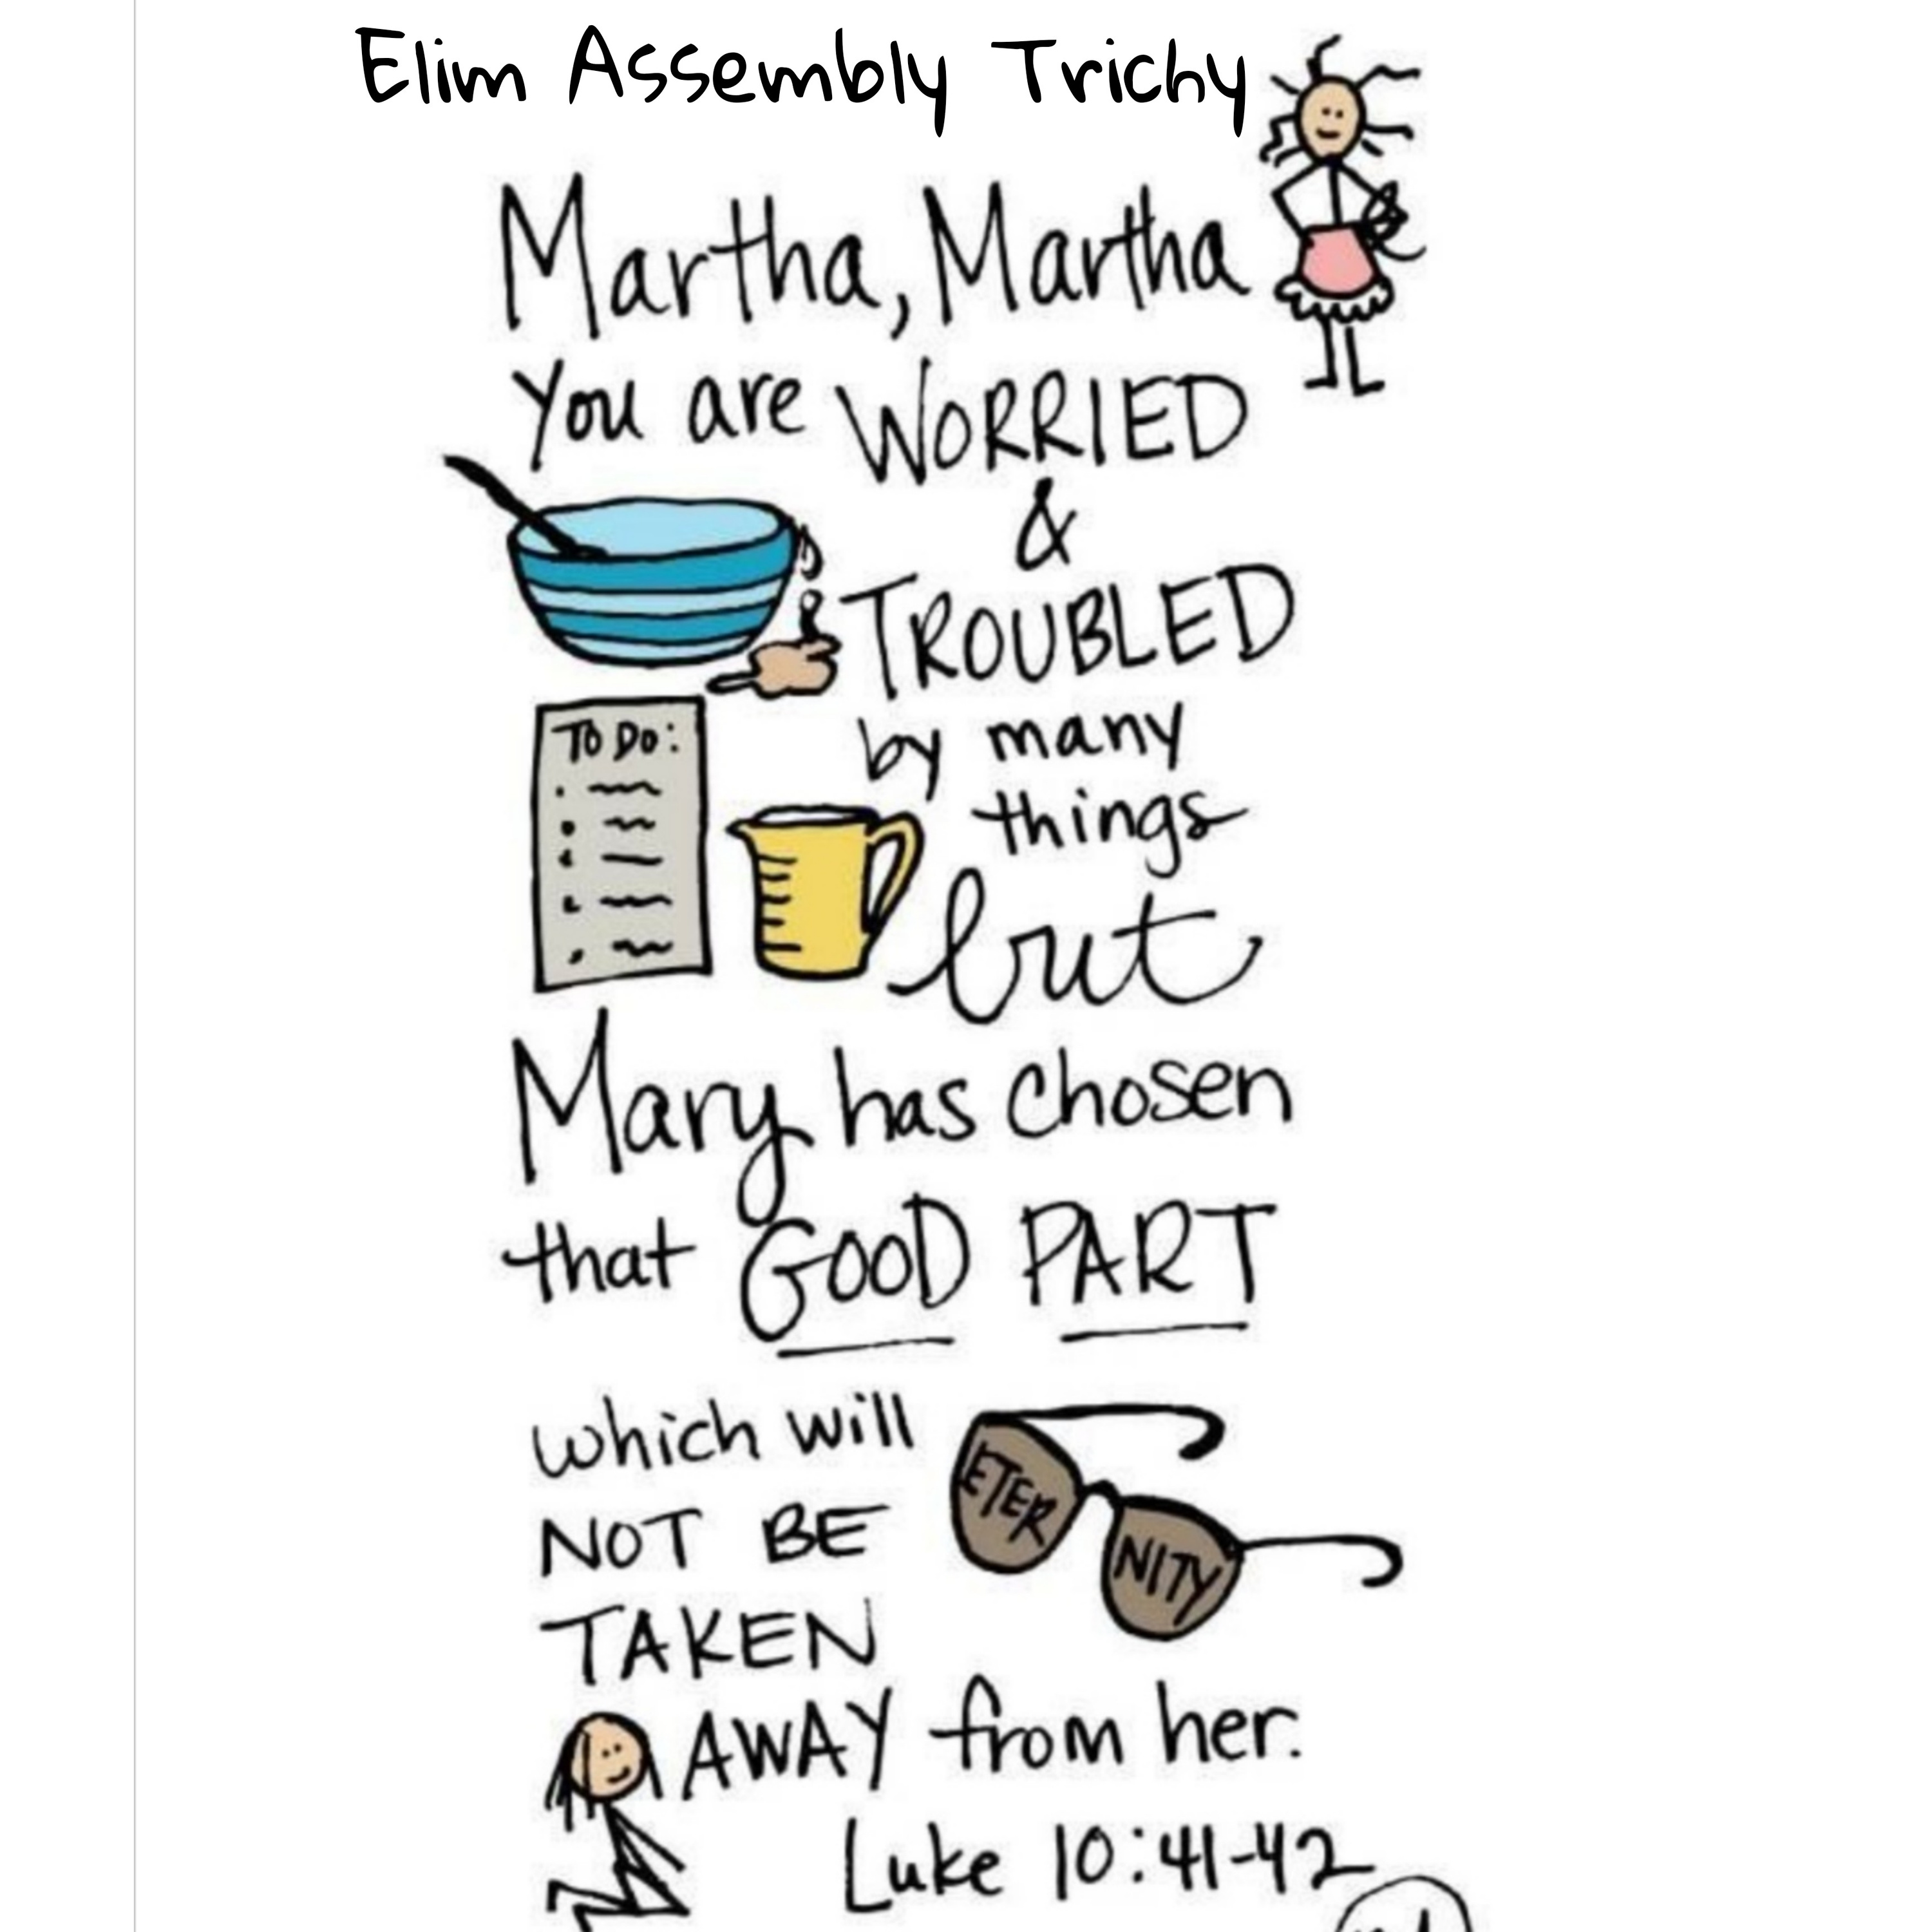 Elim Assembly Trichy
Martha, Martha
You are WORRIED
&
TROUBLED
by many
things
TO DO:
but
Mary has chosen
that GOOD PART
which will
NOT BE
TAKEN
ETER
NITY
AWAY from her.
Luke 10:41-42